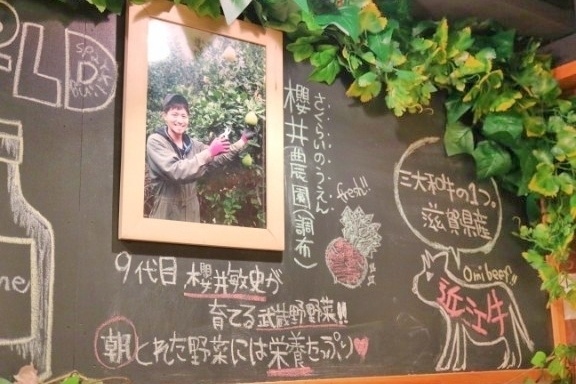 櫻井農園(調布)
さくらいのうえん
fresh!!
三大和牛の1つ。
滋賀県産
Omi beef!!
近江牛
9代目 櫻井敏史が
育てる武蔵野野菜!!
朝とれた野菜には栄養たっぷり♥